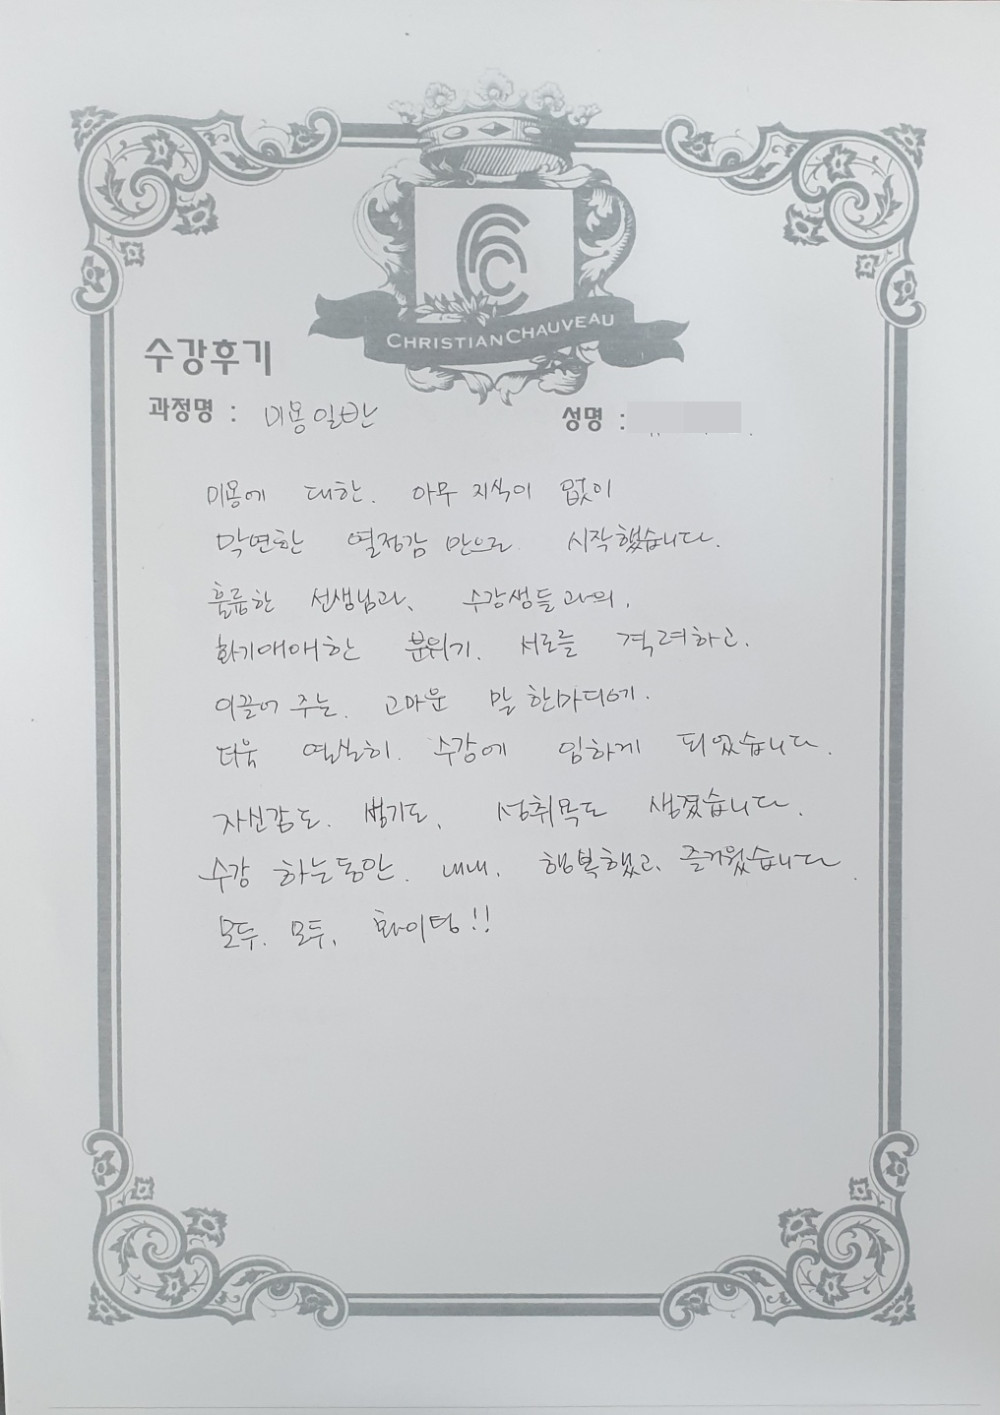 CHRISTIAN CHAUVEAU
수강후기
과정명 : 미용일반 성명 :
미용에 대한. 아무 지식이 없이
막연한 열정감 만으로 시작했습니다.
훌륭한 선생님과, 수강생들과의,
화기애애한 분위기. 서로를 격려하고.
이끌어 주는. 고마운 말 한마디에.
더욱 열심히. 수강에 임하게 되었습니다.
자신감도. 용기도, 성취욕도 생겼습니다.
수강 하는동안. 내내, 행복했고, 즐거웠습니다.
모두. 모두, 화이팅!!